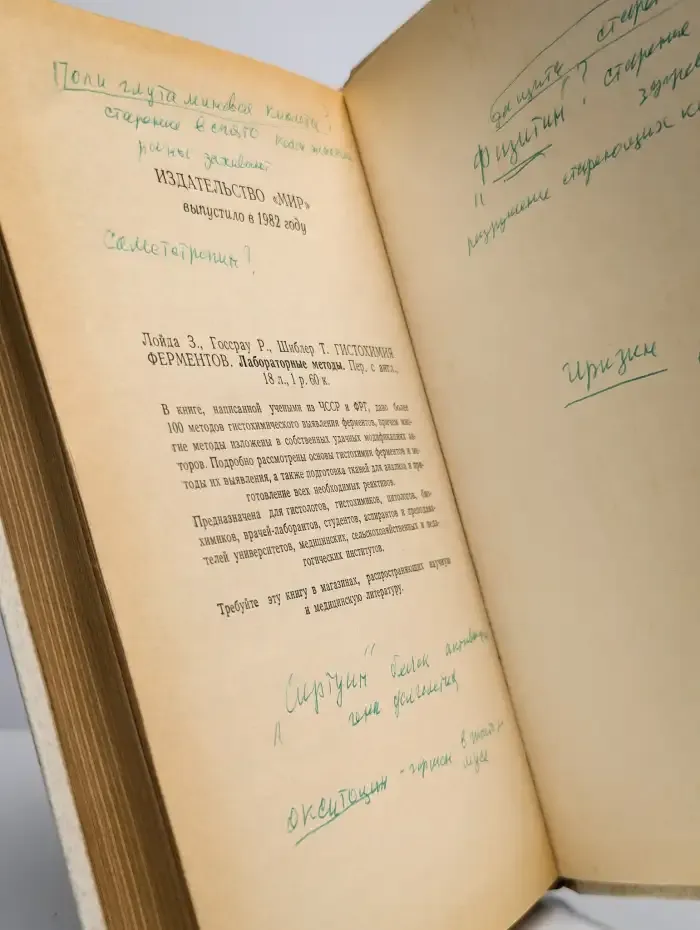 Поли глутаминовая кислота?
старение
раны заживают
ИЗДАТЕЛЬСТВО «МИР»
выпустило в 1982 году
Саметатропин?
Лойда З., Госсрау Р., Шиблер Т. ГИСТОХИМИЯ
ФЕРМЕНТОВ. Лабораторные методы. Пер. с англ.,
18 л., 1 р. 60 к.
В книге, написанной учеными из ЧССР и ФРГ, дано более
100 методов гистохимического выявления ферментов, причем мно-
гие методы изложены в собственных удачных модификациях ав-
торов. Подробно рассмотрены основы гистохимии ферментов и ме-
тоды их выявления, а также подготовка тканей для анализа и при-
готовление всех необходимых реактивов.
Предназначена для гистологов, гистохимиков, цитологов, био-
химиков, врачей-лаборантов, студентов, аспирантов и преподава-
телей университетов, медицинских, сельскохозяйственных и педа-
гогических институтов.
Требуйте эту книгу в магазинах, распространяющих научную
и медицинскую литературу.
"Сиртуин" белок
гена долголетия
окситоцин - гормон в
защита старен
Физитин? старение
здоров
разрушение стареющих к
Иризин